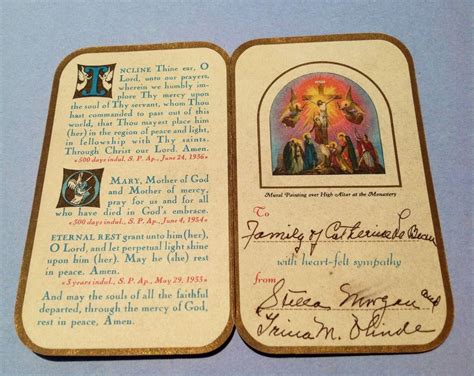 INCLINE Thine ear, O
Lord, unto our prayers,
wherein we humbly im-
plore Thy mercy upon
the soul of Thy servant, whom Thou
hast commanded to pass out of this
world, that Thou mayest place him
(her) in the region of peace and light,
in fellowship with Thy saints.
Through Christ our Lord. Amen.
«500 days indul. S. P. Ap., June 24, 1936»
O MARY, Mother of God
and Mother of mercy,
pray for us and for all
who have died in God's embrace.
«500 days indul. S. P. Ap., June 4, 1934»
ETERNAL REST grant unto him (her),
O Lord, and let perpetual light shine
upon him (her). May he (she) rest
in peace. Amen.
«3 years indul., S. P. Ap., May 29, 1933»
And may the souls of all the faithful
departed, through the mercy of God,
rest in peace, Amen.
Mural Painting over High Altar at the Monastery
To
Family of Catherine Le
with heart-felt sympathy
from
Stella Morgan and
Trina M.